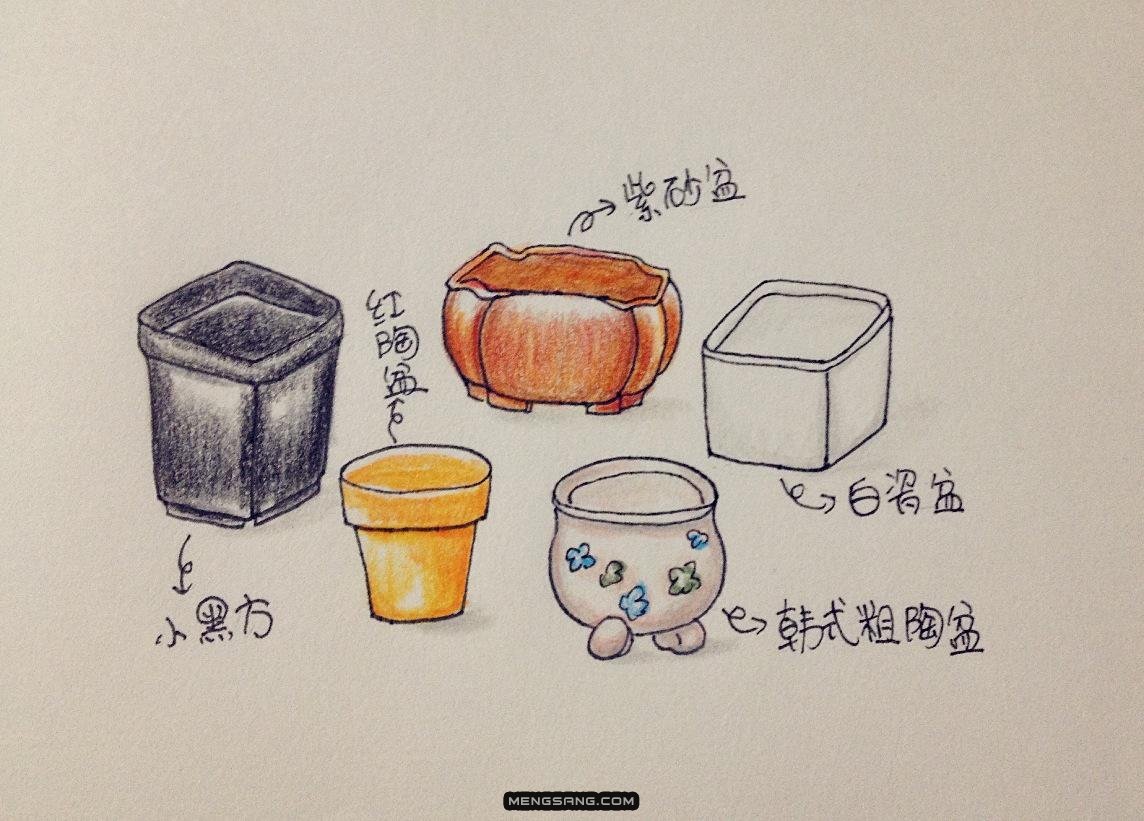 紫砂盆
红陶盆
白瓷盆
小黑方
韩式粗陶盆
MENGSANG.COM